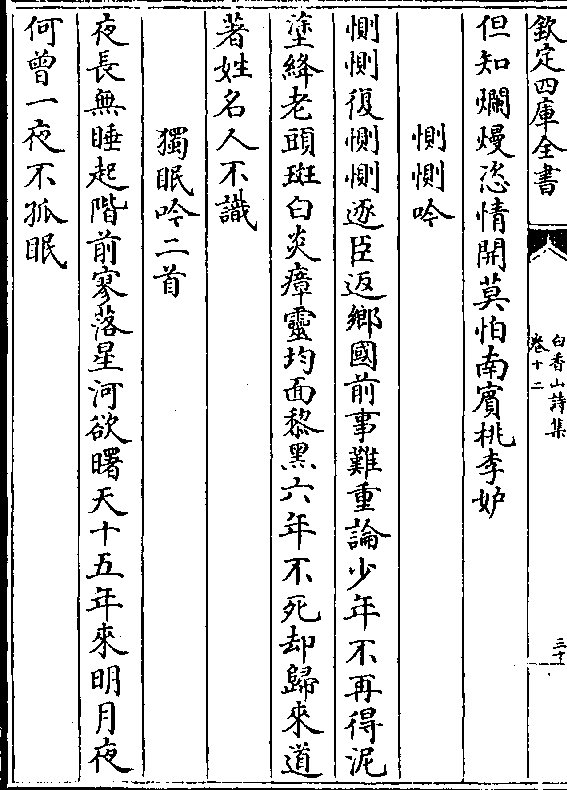 欽定四庫全書
白香山詩集
卷十二
三十
但知爛熳恣情開莫怕南賓桃李妒
惻惻吟
惻惻復惻惻逐臣返鄉國前事難重論少年不再得泥
塗絳老頭斑白炎瘴靈均面黎黑六年不死却歸來道
著姓名人不識
獨眠吟二首
夜長無睡起階前寥落星河欲曙天十五年來明月夜
何曾一夜不孤眠